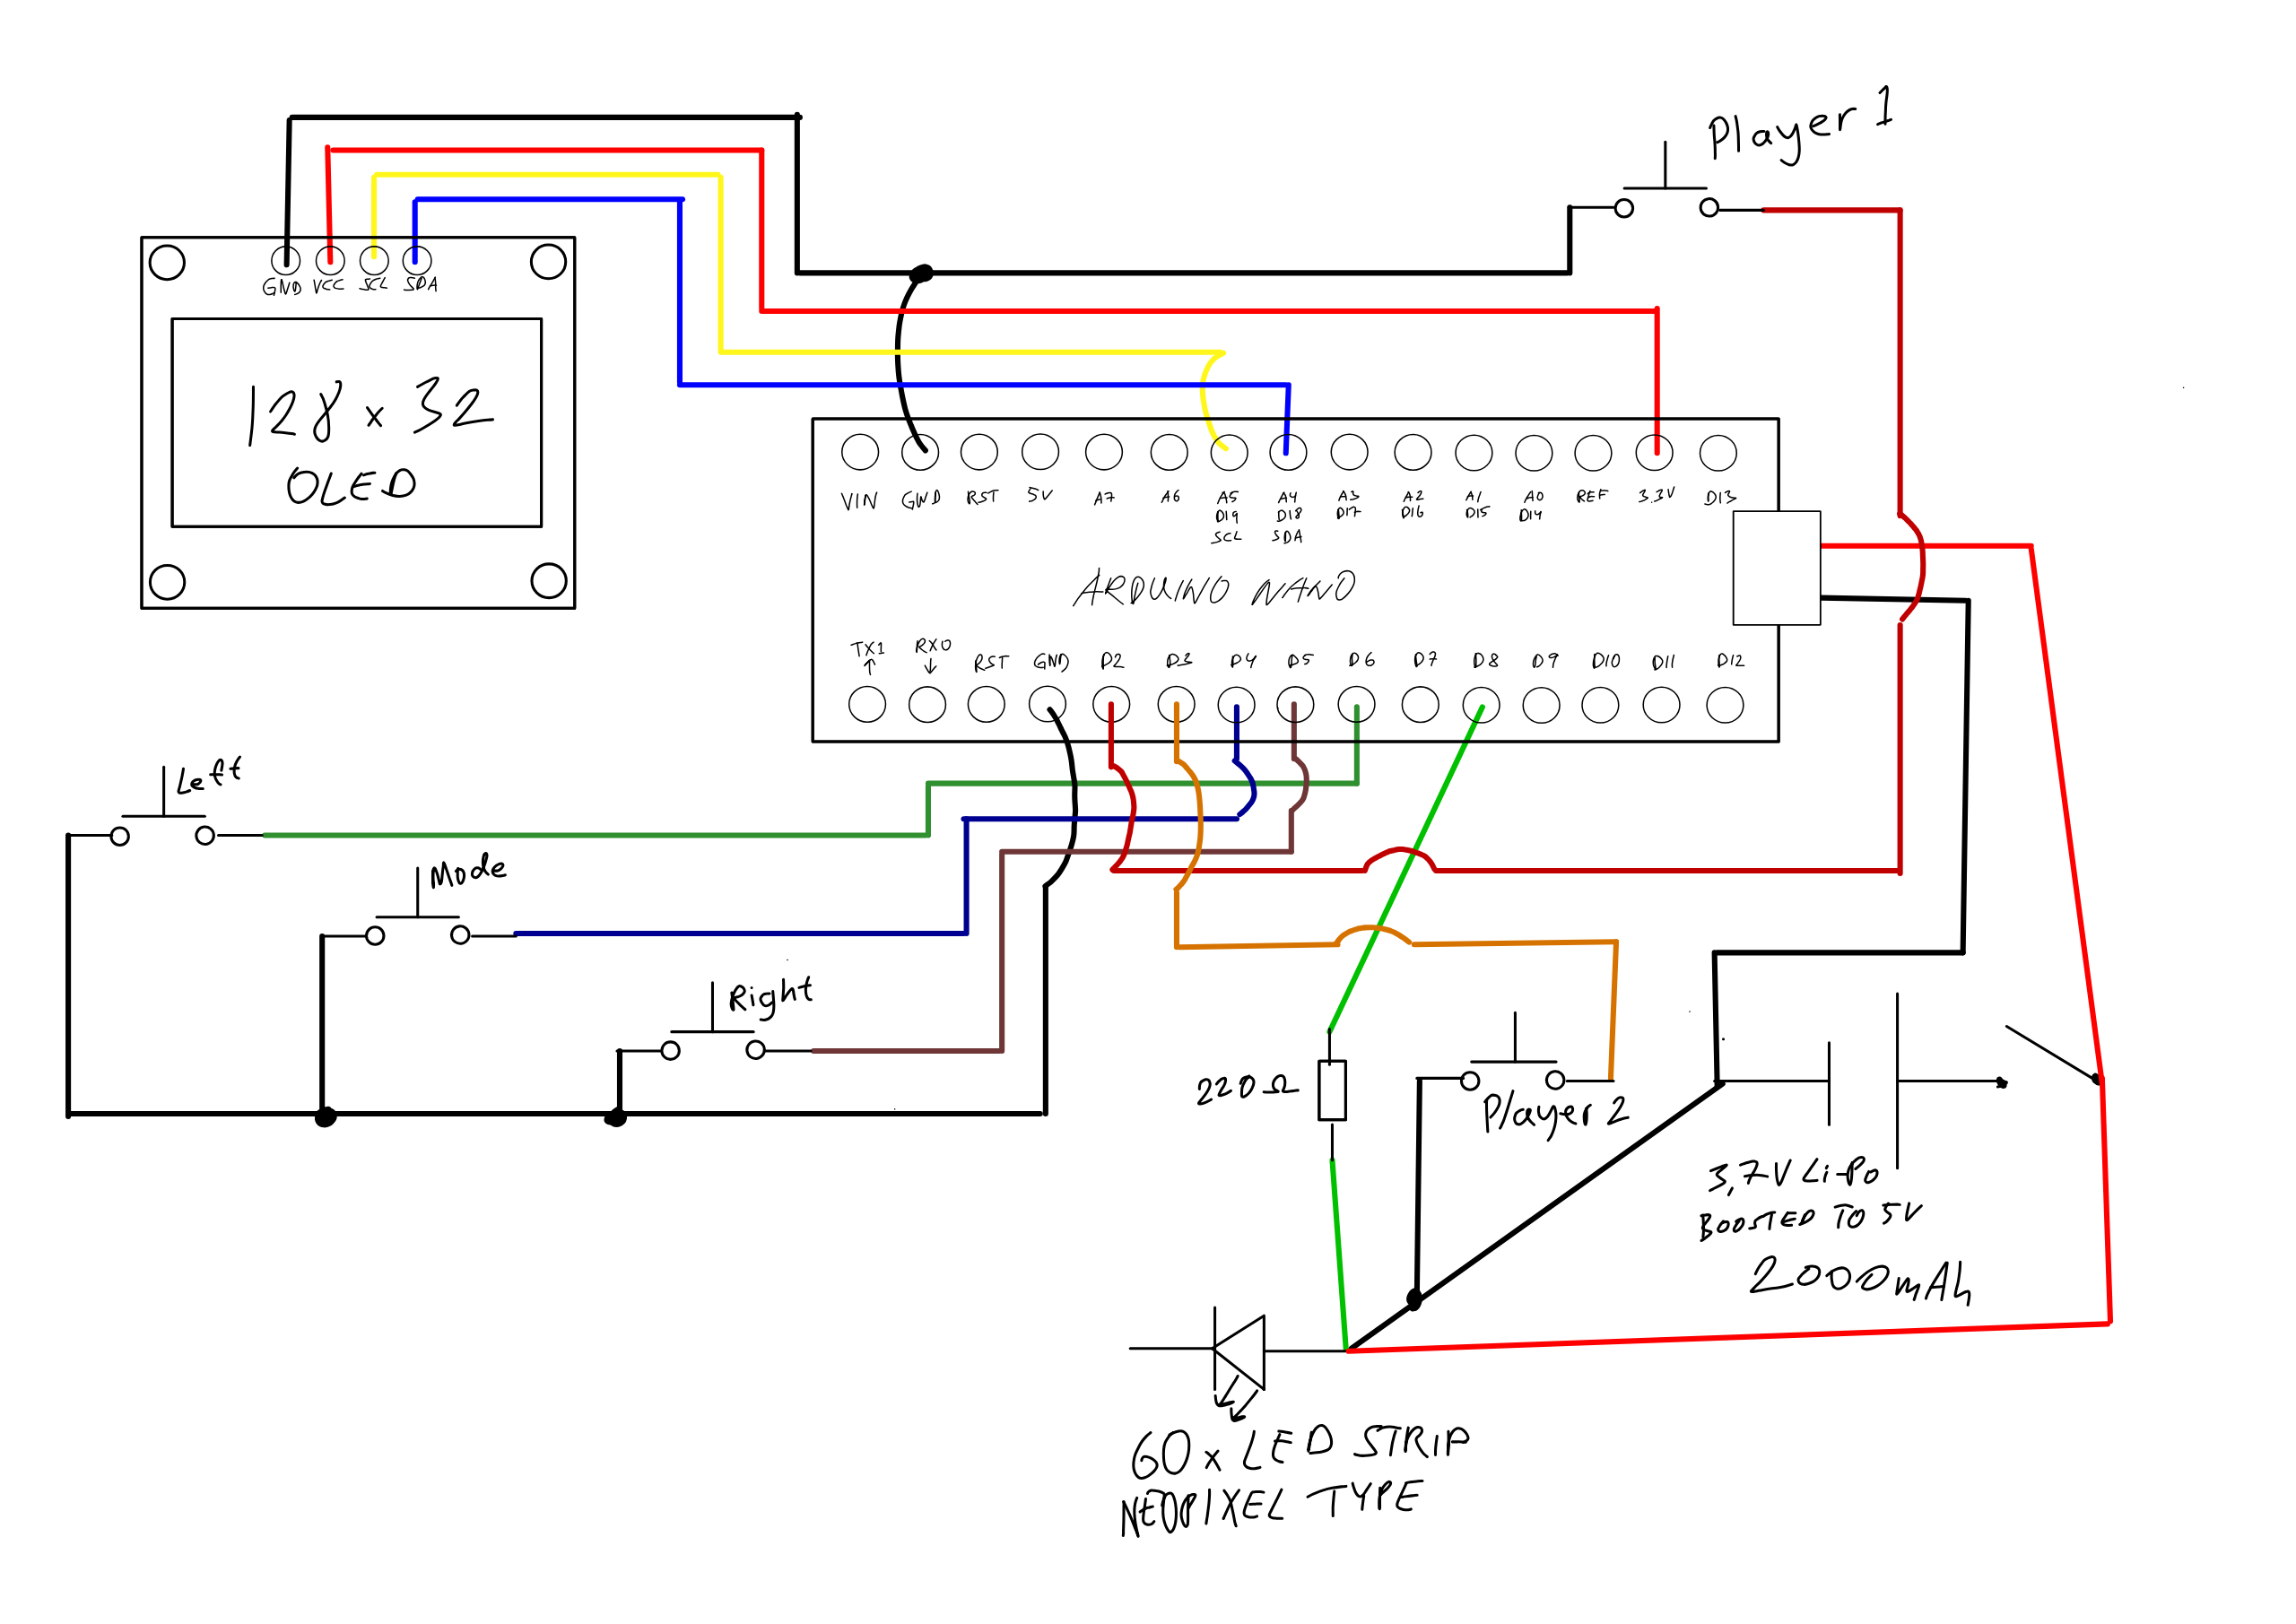 Player 1
GND VCC SCL SDA
128 x 32
OLED
VIN GND RST 5V A7 A6 A5 A4 A3 A2 A1 A0 REF 3.3V D13
D19 D18 D17 D16 D15 D14
SCL SDA
ARDUINO NANO
TX1 RX0 RST GND D2 D3 D4 D5 D6 D7 D8 D9 D10 D11 D12
↑ ↓
Left
Mode
Right
220Ω
Player 2
3,7V Li-Po
BOOSTED TO 5V
2000mAh
60x LED STRIP
NEOPIXEL TYPE